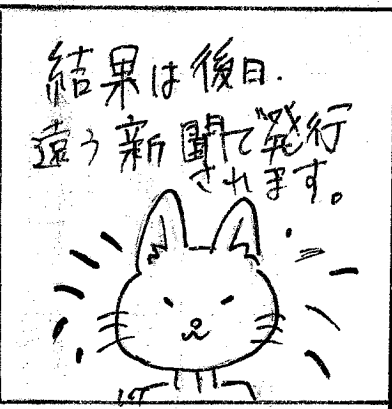 結果は後日.
違う新聞で発行
されます。